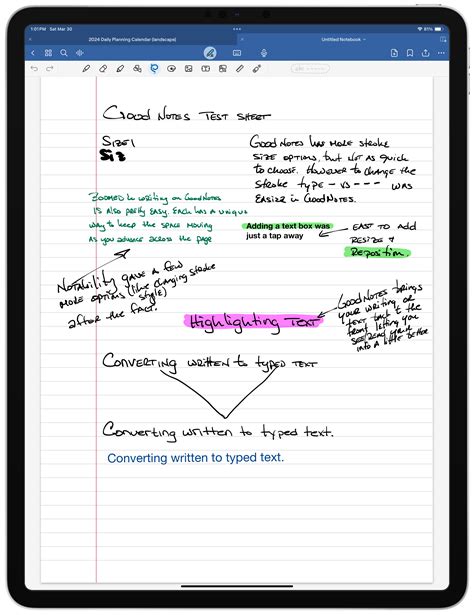 1:01PM Sat Mar 30
81%
2024 Daily Planning Calendar (landscape)
Untitled Notebook
GOOD NOTES TEST SHEET
SIZE 1
GOODNOTES HAS MORE STROKE
SIZE OPTIONS, but NOT AS QUICK
to CHOOSE. HOWEVER to CHANGE THE
STROKE type — VS - - - WAS
EASIER in GOODNOTES.
ZOOMED in WRITING on GOODNOTES
IS Also pretty EASY. EACH HAS A UNIQUE
WAY to KEEP the SPACE MOVING
AS you ADVANCE ACROSS the PAGE
Adding a text box was
just a tap away
EAST TO ADD
RESIZE &
REPOSITION.
NOTABILITY GAVE A FEW
MORE OPTIONS (like CHANGING STROKE
STYLE)
AFTER the FACT.
Highlighting TEXT
GOODNOTES BRINGS
YOUR WRITING OR
TEXT back to the
front letting you
SEE/READ
into A little better
CONVERTING WRITTEN to TYPED TEXT
Converting written to typed text.
Converting written to typed text.